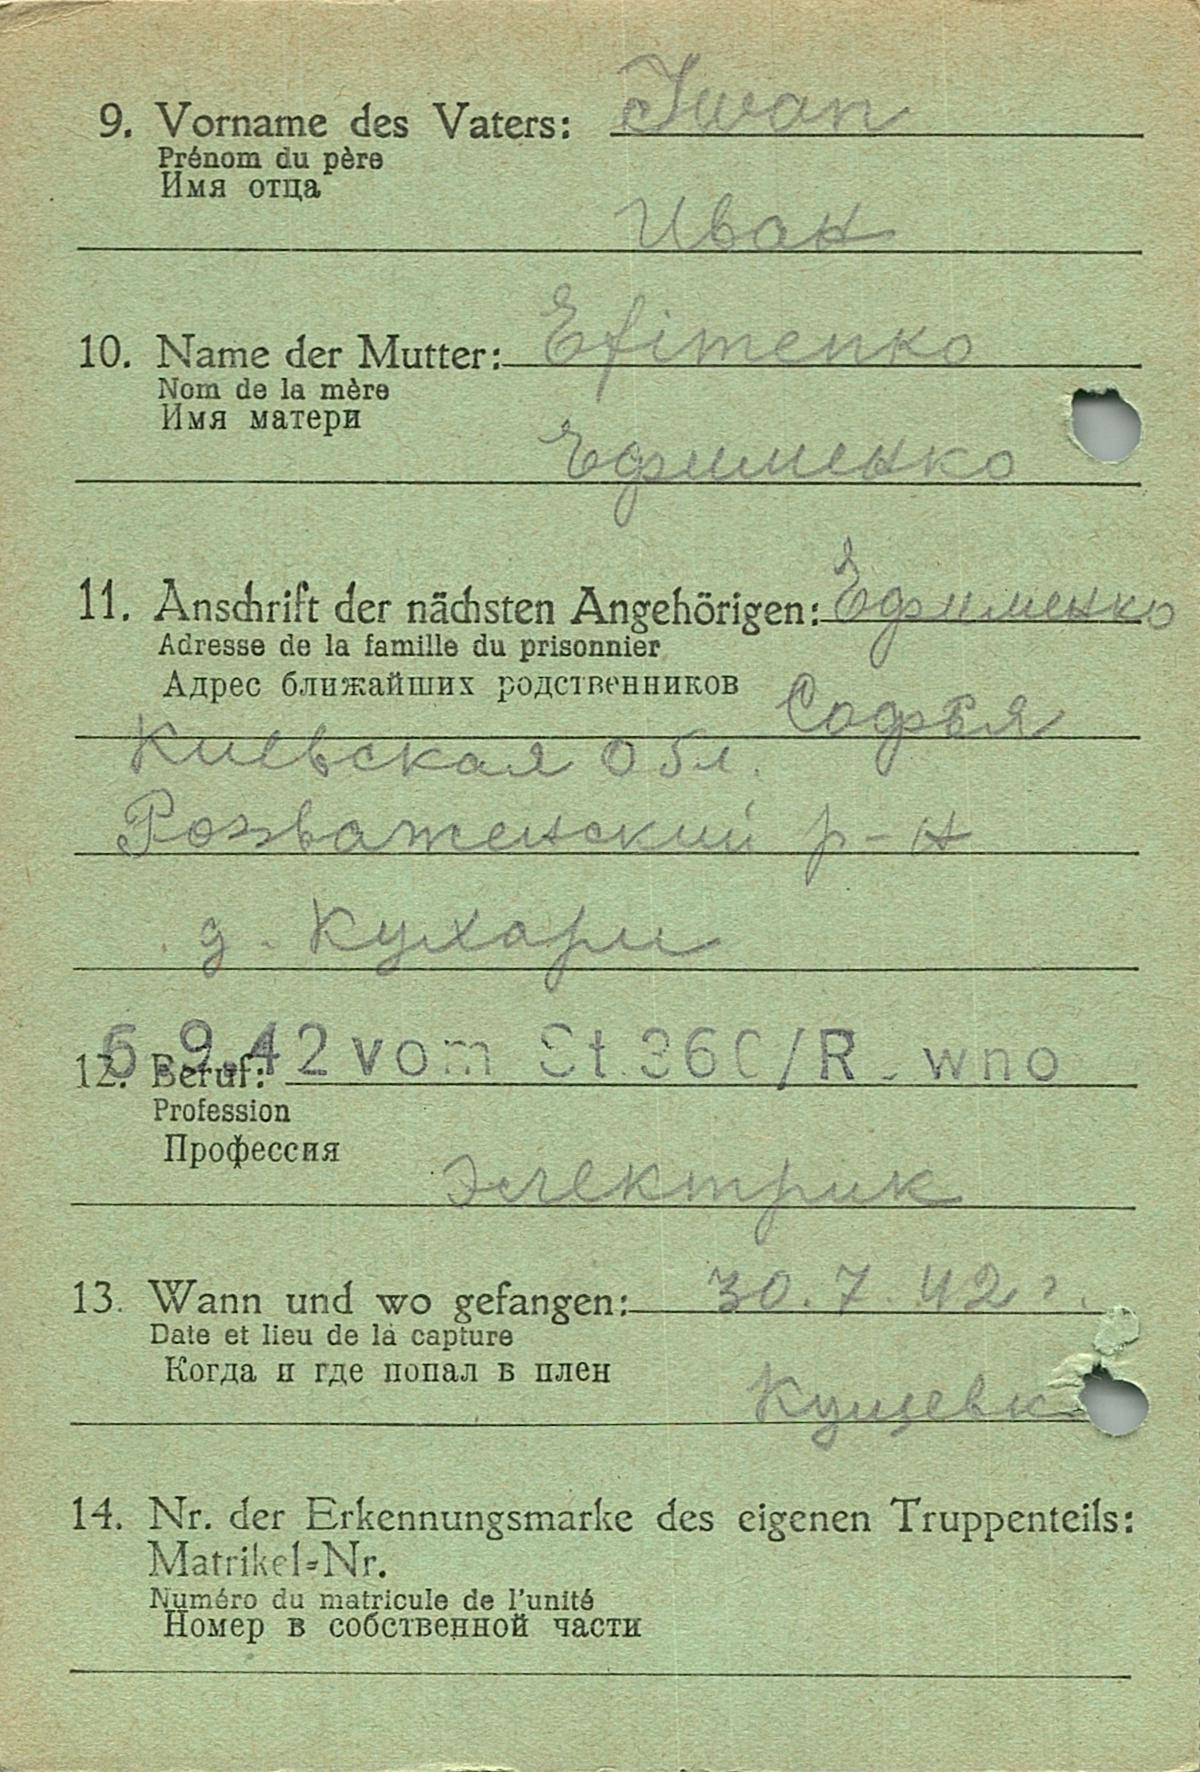 9. Vorname des Vaters: Iwan
Prénom du père
Имя отца
Иван
10. Name der Mutter: Efimenko
Nom de la mère
Имя матери
Ефименко
11. Anschrift der nächsten Angehörigen: Ефименко
Adresse de la famille du prisonnier
Адрес ближайших родственников Софья
Киевская обл.
Розваженский р-н
д. Кухари
6.9.42 vom St.360/R wno
12. Beruf:
Profession
Профессия
Электрик
13. Wann und wo gefangen: 30.7.42 г.
Date et lieu de la capture
Когда и где попал в плен
Кущевк
14. Nr. der Erkennungsmarke des eigenen Truppenteils:
Matrikel=Nr.
Numéro du matricule de l'unité
Номер в собственной части